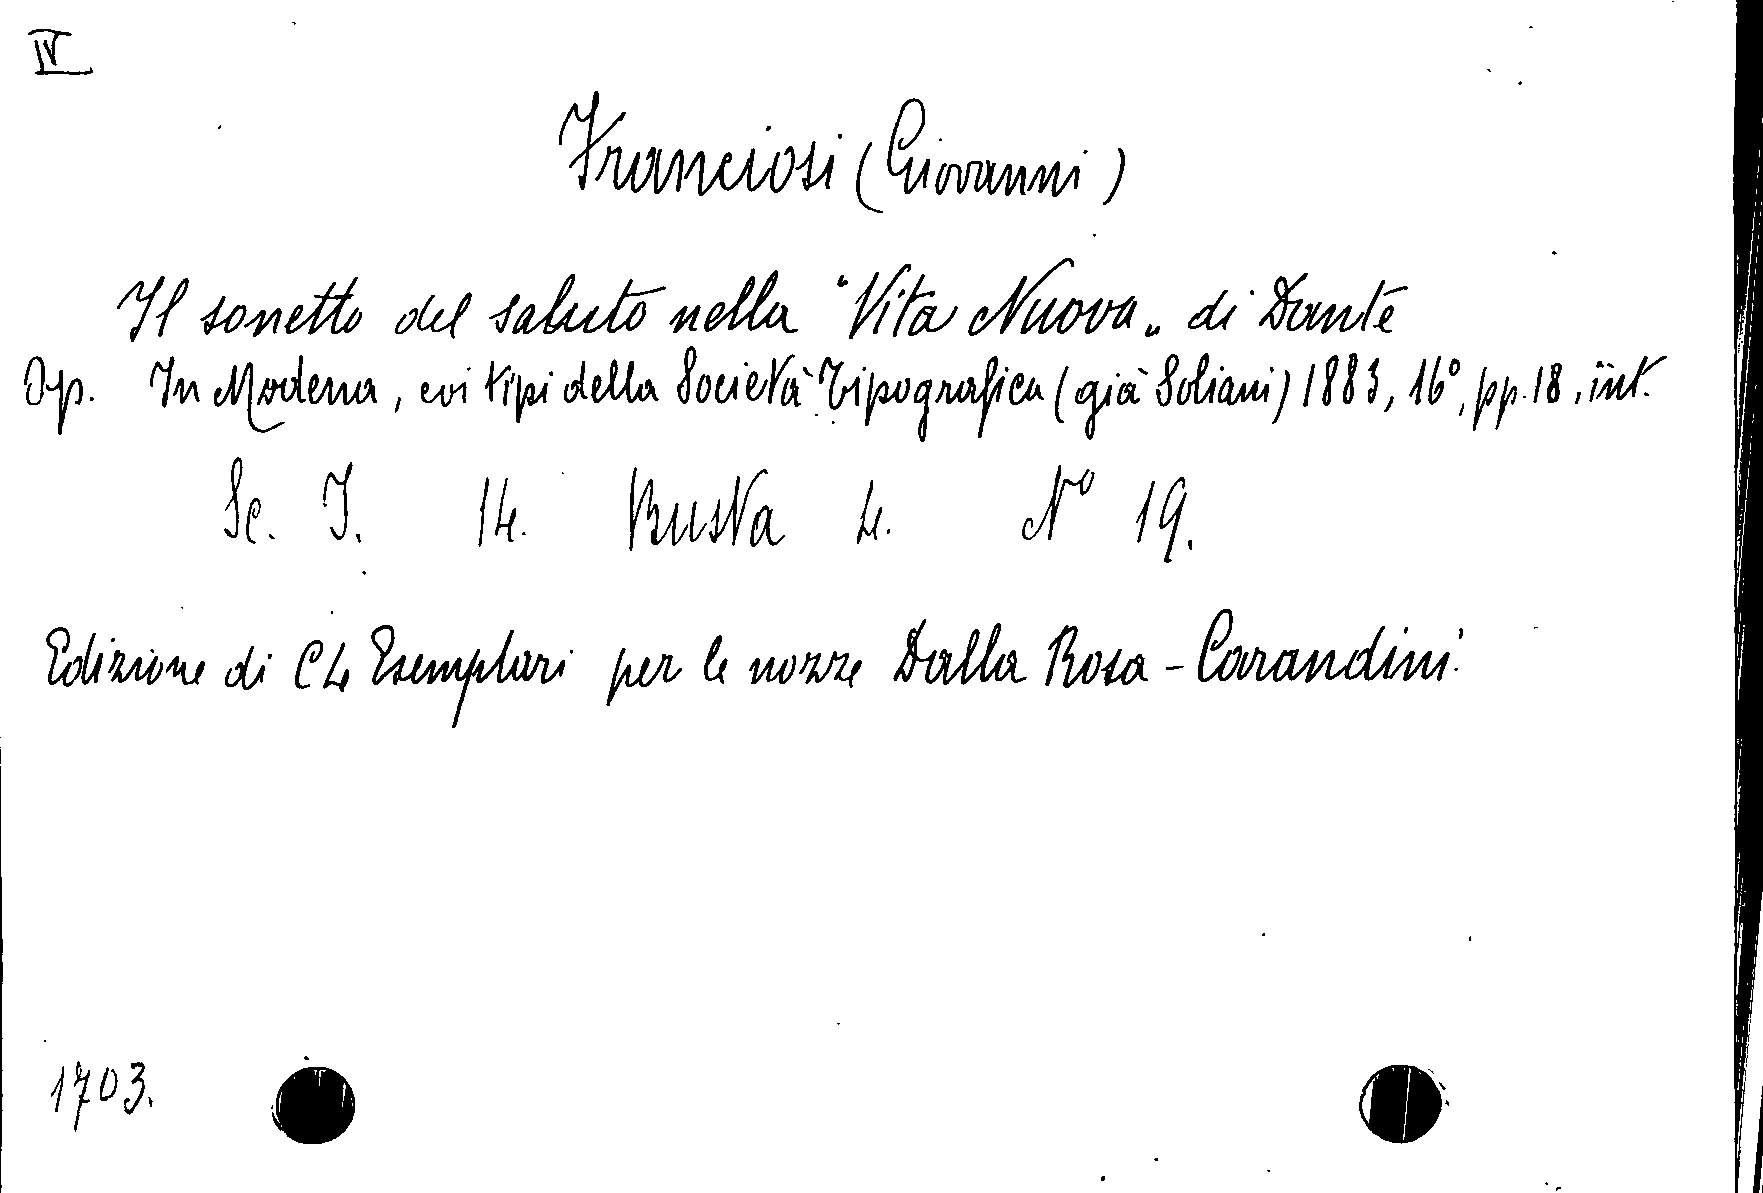 IV
Franciosi (Giovanni)
Il sonetto del saluto nella "Vita Nuova„ di Dante
Op. In Modena, coi tipi della Società Tipografica (già Soliani) 1883, 16°, pp. 18, int.
Sc. I. 14. Busta 4. N° 19.
Edizione di C4 Esemplari per le nozze Dalla Rosa - Carandini.
1703.